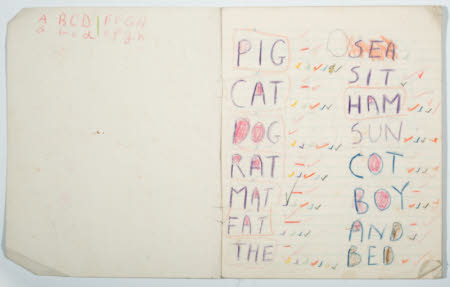 A B C D E F G H
a b c d e f g h
PIG
CAT
DOG
RAT
MAT
FAT
THE
SEA
SIT
HAM
SUN
COT
BOY
AND
BED